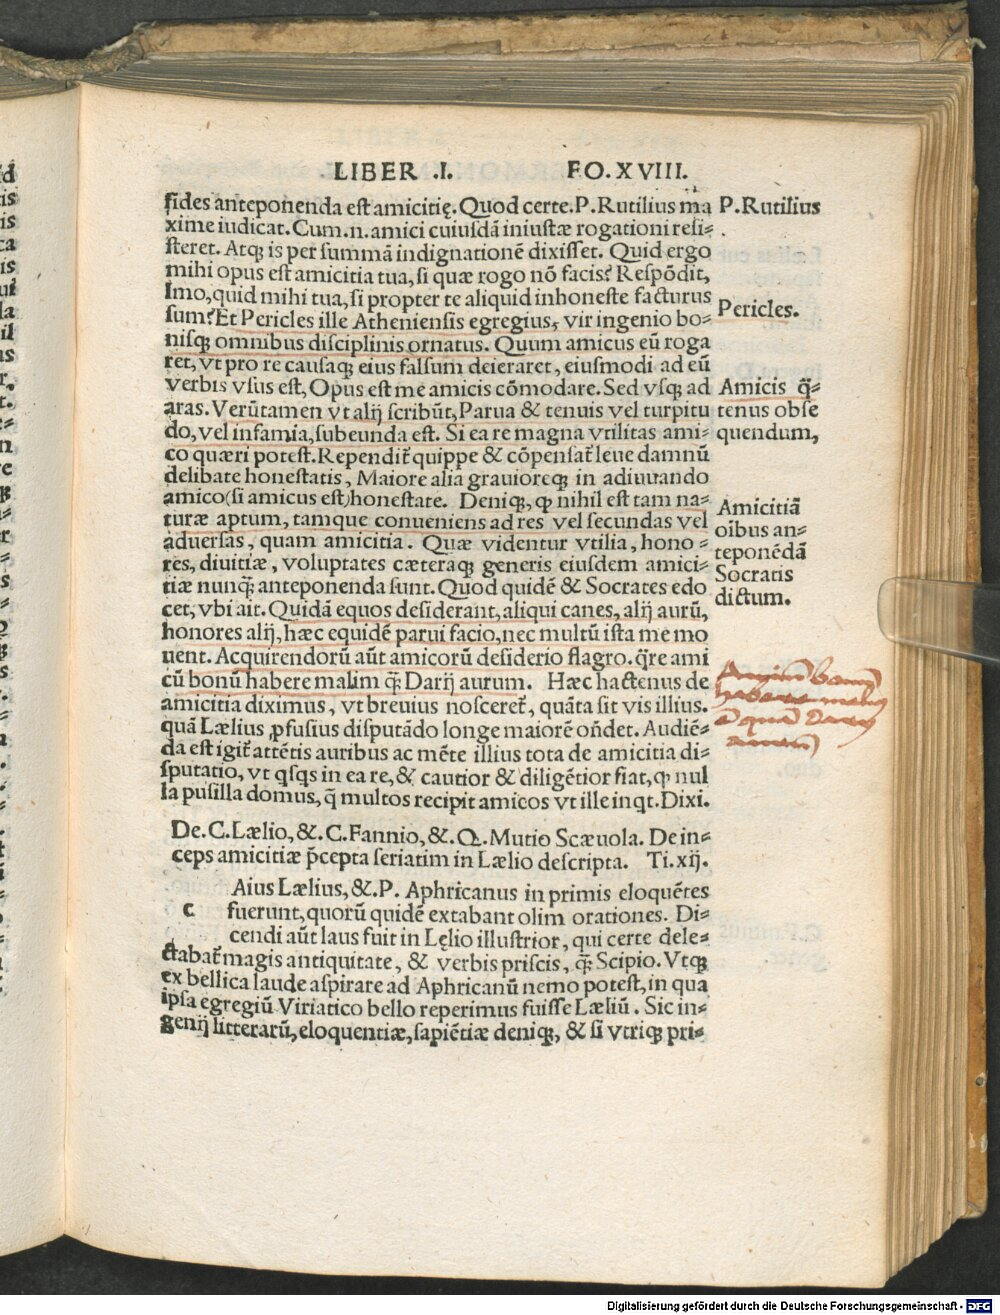 LIBER .I. FO. XVIII.
fides anteponenda est amicitię. Quod certe. P. Rutilius ma
xime iudicat. Cum .n. amici cuiusdā iniustæ rogationi resi⸗
steret. Atqꝫ is per summā indignationē dixisset. Quid ergo
mihi opus est amicitia tua, si quæ rogo nō facis? Respōdit,
Imo, quid mihi tua, si propter te aliquid inhoneste facturus
sum? Et Pericles ille Atheniensis egregius, vir ingenio bo⸗
nisqꝫ omnibus disciplinis ornatus. Quum amicus eū roga
ret, vt pro re causaqꝫ eius falsum deieraret, eiusmodi ad eū
verbis vsus est, Opus est me amicis cōmodare. Sed vsqꝫ ad
aras. Verūtamen vt alij scribūt, Parua & tenuis vel turpitu
do, vel infamia, subeunda est. Si ea re magna vtilitas ami⸗
co quæri potest. Rependit᷑ quippe & cōpensat᷑ leue damnū
delibate honestatis, Maiore alia grauioreqꝫ in adiuuando
amico (si amicus est) honestate. Deniqꝫ, ꝙ nihil est tam na⸗
turæ aptum, tamque conueniens ad res vel secundas vel
aduersas, quam amicitia. Quæ videntur vtilia, hono⸗
res, diuitiæ, voluptates cæteraqꝫ generis eiusdem amici⸗
tiæ nunqꝫ̄ anteponenda sunt. Quod quidē & Socrates edo
cet, vbi ait. Quidā equos desiderant, aliqui canes, alij aurū,
honores alij, hæc equidē parui facio, nec multū ista me mo
uent. Acquirendorū aūt amicorū desiderio flagro. q̄re ami
cū bonū habere malim qꝫ̄ Darij aurum. Hæc hactenus de
amicitia diximus, vt breuius nosceret᷑, quāta sit vis illius.
quā Lælius ꝓfusius disputādo longe maiorē oñdet. Audiē⸗
da est igit᷑ attētis auribus ac mēte illius tota de amicitia di⸗
sputatio, vt qsqs in ea re, & cautior & diligētior fiat, ꝙ nul
la pusilla domus, q̄ multos recipit amicos vt ille inqt. Dixi.
De. C. Lælio, &. C. Fannio, &. Q. Mutio Scæuola. De in⸗
ceps amicitiæ p̄cepta seriatim in Lælio descripta. Ti. xij.
c Aius Lælius, &. P. Aphricanus in primis eloquētes
fuerunt, quorū quidē extabant olim orationes. Di⸗
cendi aūt laus fuit in Lęlio illustrior, qui certe dele⸗
ctabat᷑ magis antiquitate, & verbis priscis, qꝫ̄ Scipio. Vtqꝫ
ex bellica laude aspirare ad Aphricanū nemo potest, in qua
ipsa egregiū Viriatico bello reperimus fuisse Læliū. Sic in⸗
genij litterarū, eloquentiæ, sapiētiæ deniqꝫ, & si vtriqꝫ pri⸗
P. Rutilius
.
Pericles.
Amicis q̄⸗
tenus obse
quendum,
Amicitiā
oībus an⸗
teponēdā
Socratis
dictum.
Amicū bonū
habere mali
quā Darij
aurum
Digitalisierung gefördert durch die Deutsche Forschungsgemeinschaft - DFG